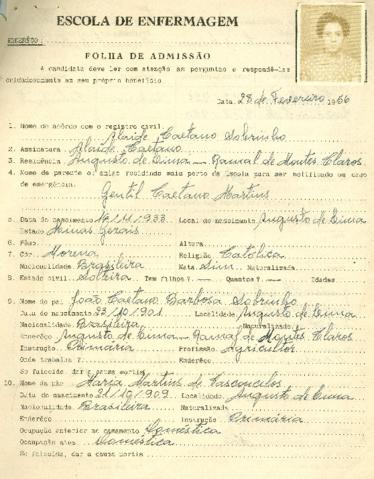 ESCOLA DE ENFERMAGEM
FOLHA DE ADMISSÃO
A candidata deve ler com atenção as perguntas e respondê-las
cuidadosamente em seu próprio benefício.
Data. 28 de Fevereiro 1966
1. Nome de acôrdo com o registro civil. Alaide Caetano Sobrinho
2. Assinatura Alaide Caetano
3. Residência Augusto de Lima - Ramal de Montes Claros
4. Nome de parente ou amigo residindo mais perto da Escola para ser notificado em caso
de emergência.
Gentil Caetano Martins
5. Data do nascimento 1933 Local do nascimento Augusto de Lima
Estado Minas Gerais
6. Pêso Altura
7. Côr Morena Religião Católica
Nacionalidade Brasileira Nata Sim Naturalizada
8. Estado civil Solteira Tem filhos? Quantos? Idades
9. Nome do pai João Caetano Barbosa Sobrinho
Data do nascimento 23/10/901 Localidade Augusto de Lima
Nacionalidade Brasileira Naturalizado
Enderêço Augusto de Lima - Ramal de Montes Claros
Instrução Primária Profissão Agricultor
Onde trabalha? Enderêço
Se falecido, dar a causa mortis
10. Nome da mãe Maria Martins de Vasconcelos
Data do nascimento 21/10/909 Localidade Augusto de Lima
Nacionalidade Brasileira Naturalizada
Enderêço Instrução Primária
Ocupação anterior ao casamento Doméstica
Ocupação atual Doméstica
Se falecida, dar a causa mortis